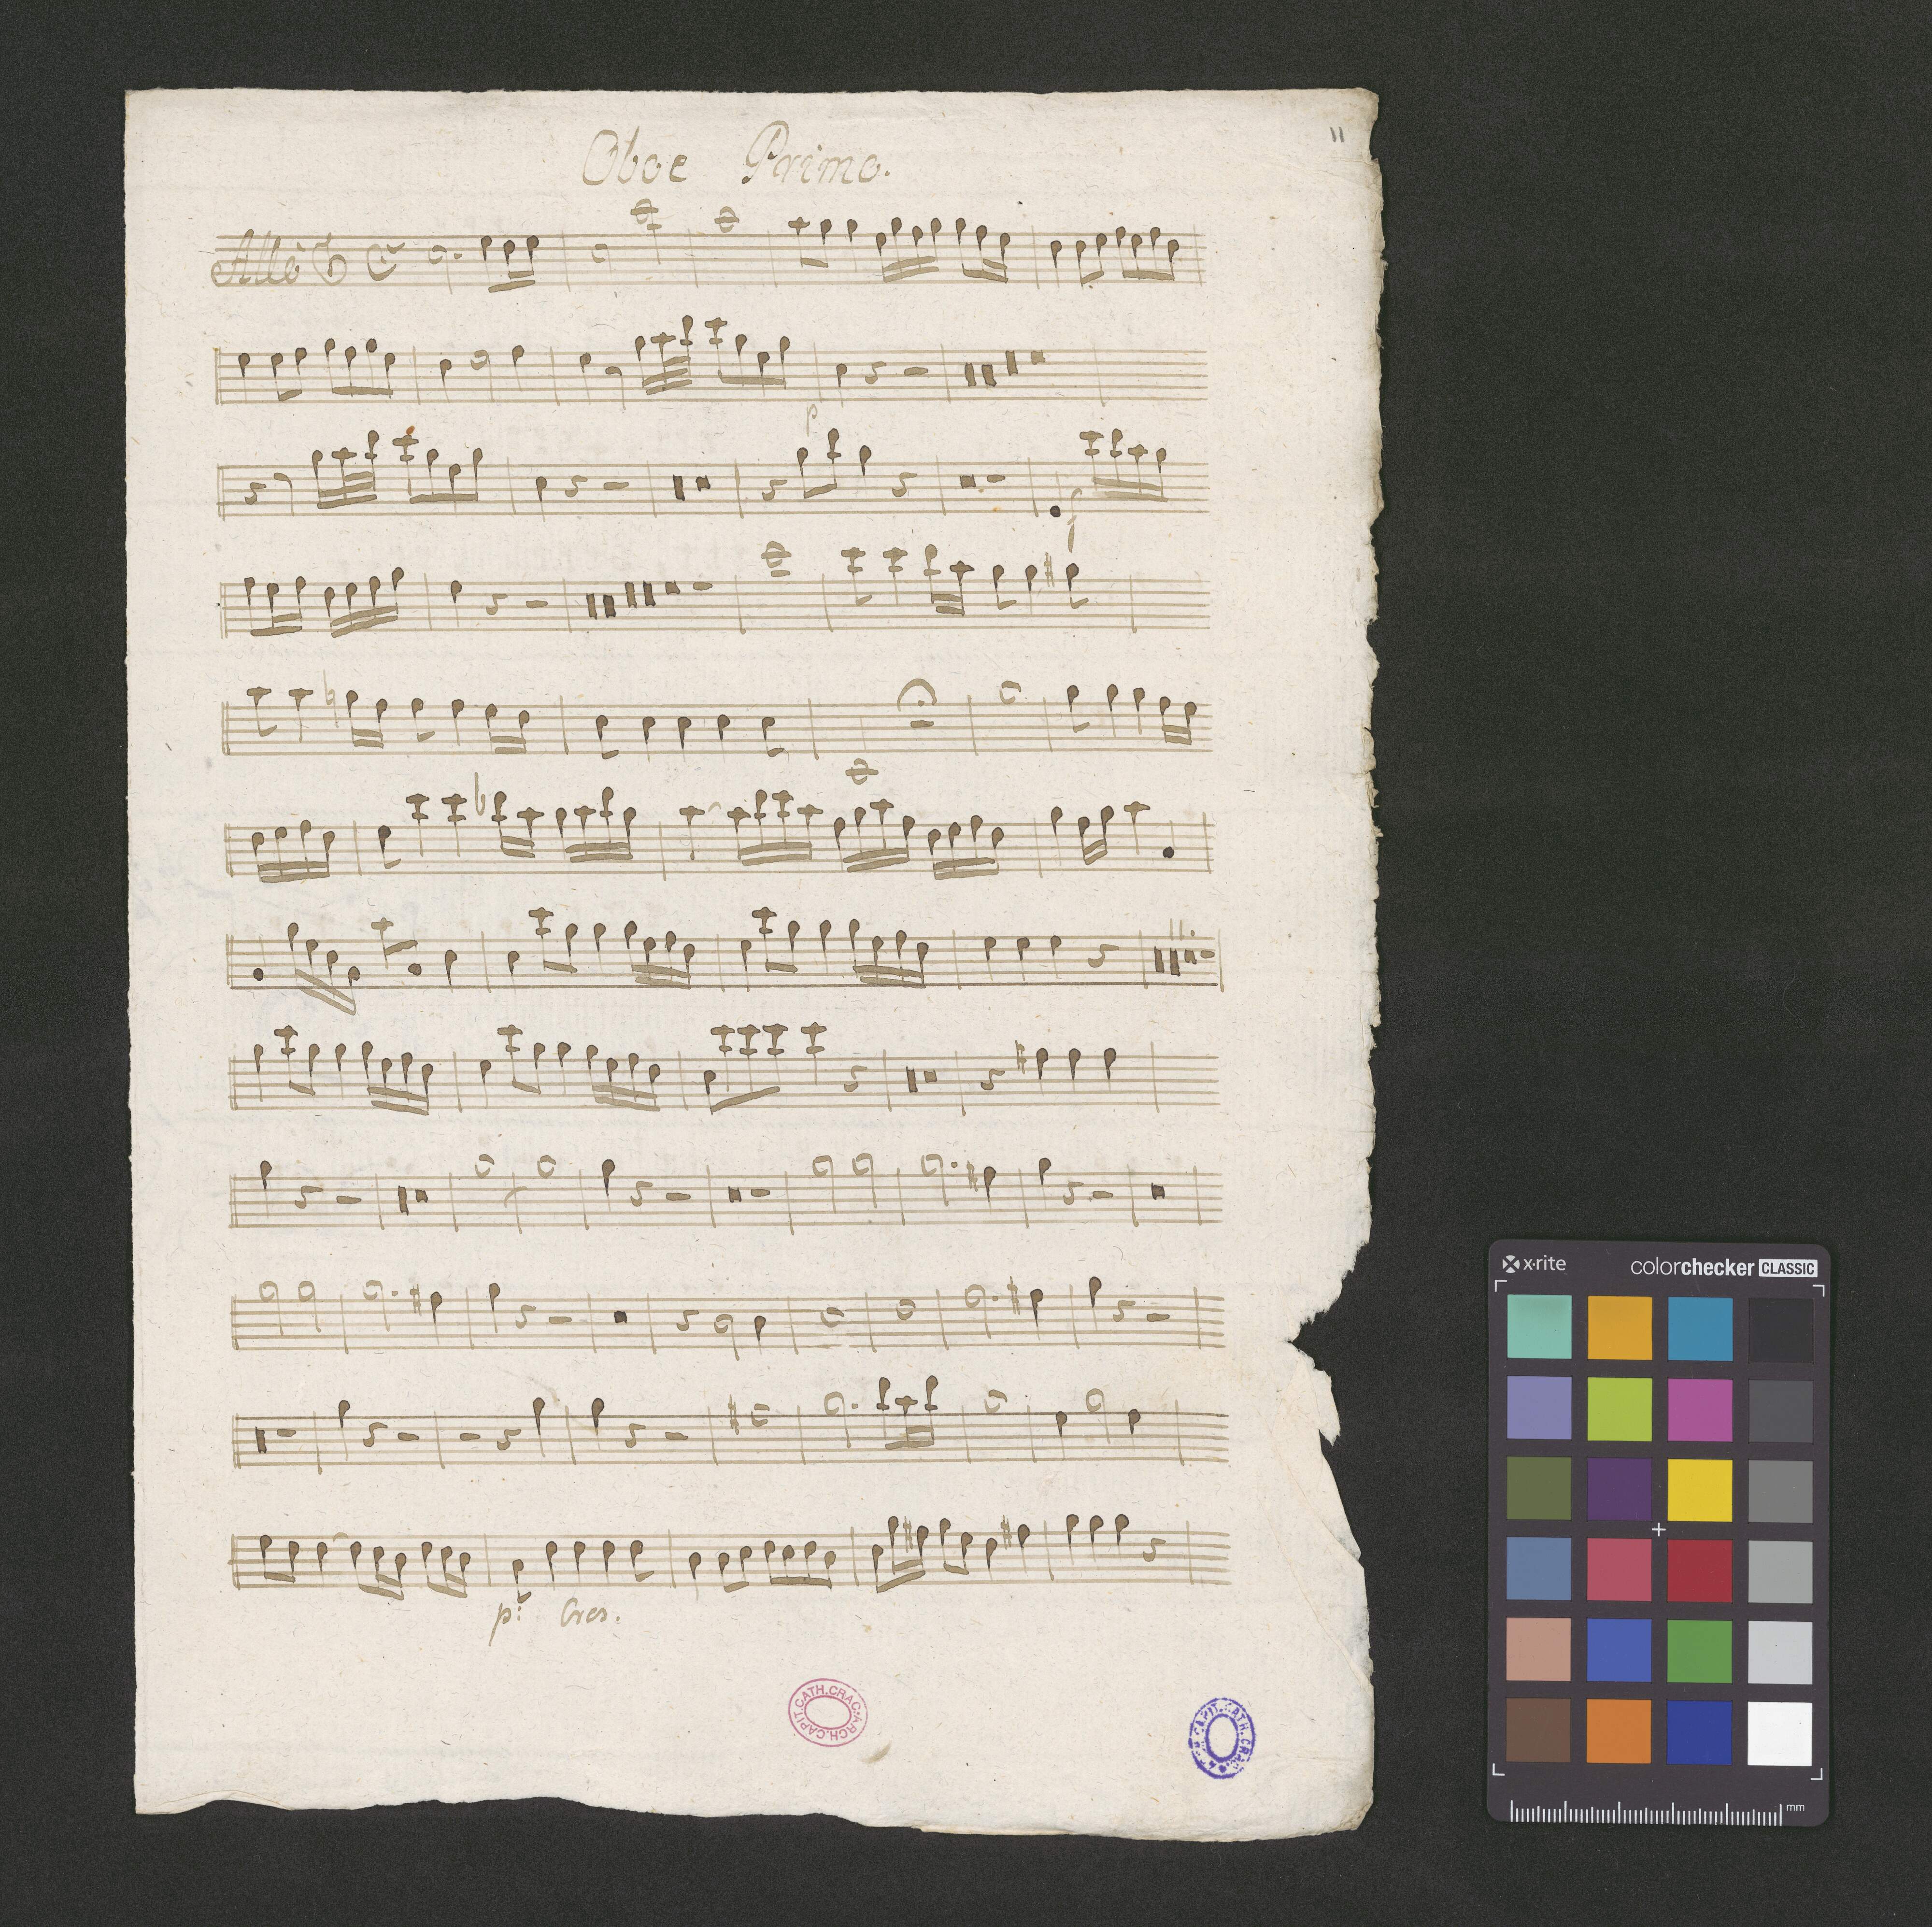 Oboe Primo.
11
Allo
p
f
p: Cres.
ARCH.CAPIT.CATH.CRAC.
CAPIT.CATH.CRAC.
x·rite
colorchecker CLASSIC
mm